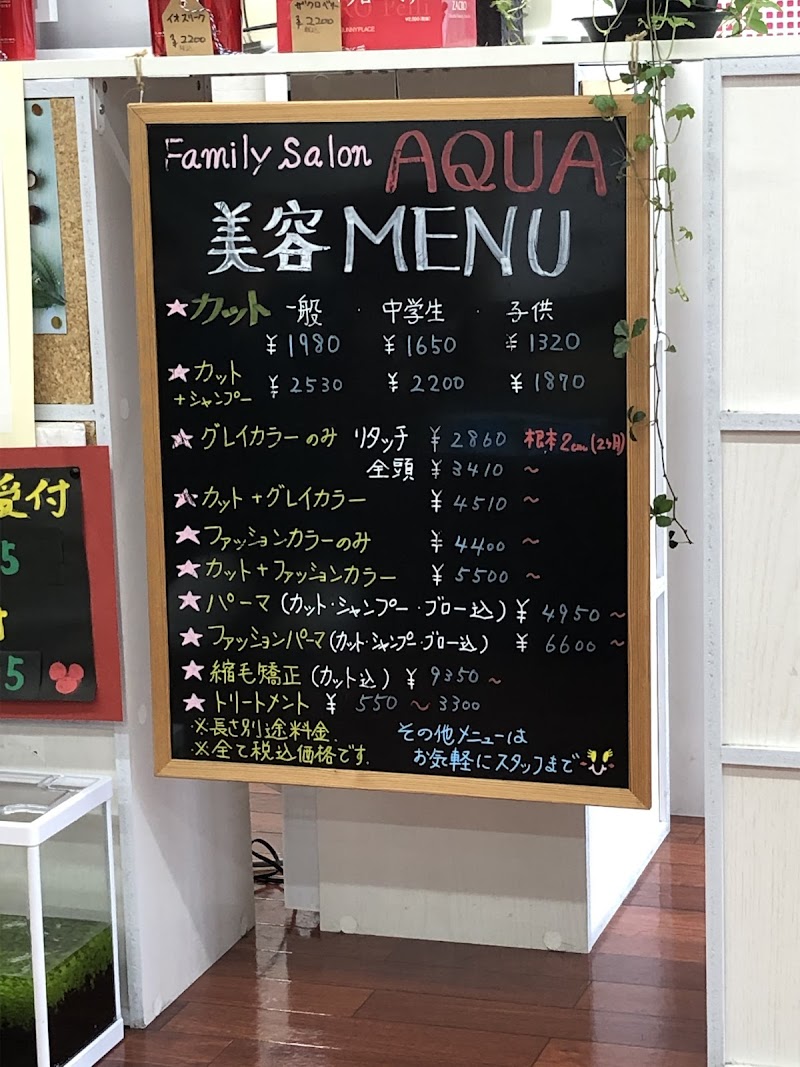 イオスリーク
¥2200
ザクロペ
¥2200
SUNNYPLACE
ZACRO
Family Salon AQUA
美容MENU
★カット 一般 ・ 中学生 ・ 子供
¥1980 ¥1650 ¥1320
★カット
+シャンプー ¥2530 ¥2200 ¥1870
★グレイカラーのみ リタッチ ¥2860 根本2cm(2ヶ月)
全頭 ¥3410 〜
★カット+グレイカラー ¥4510 〜
★ファッションカラーのみ ¥4400 〜
★カット+ファッションカラー ¥5500 〜
★パーマ(カット・シャンプー・ブロー込) ¥4950 〜
★ファッションパーマ(カット・シャンプー・ブロー込) ¥6600 〜
★縮毛矯正(カット込) ¥9350 〜
★トリートメント ¥550 〜 3300
※長さ別途料金.
※全て税込価格です.
その他メニューは
お気軽にスタッフまで
受付
5
付
5